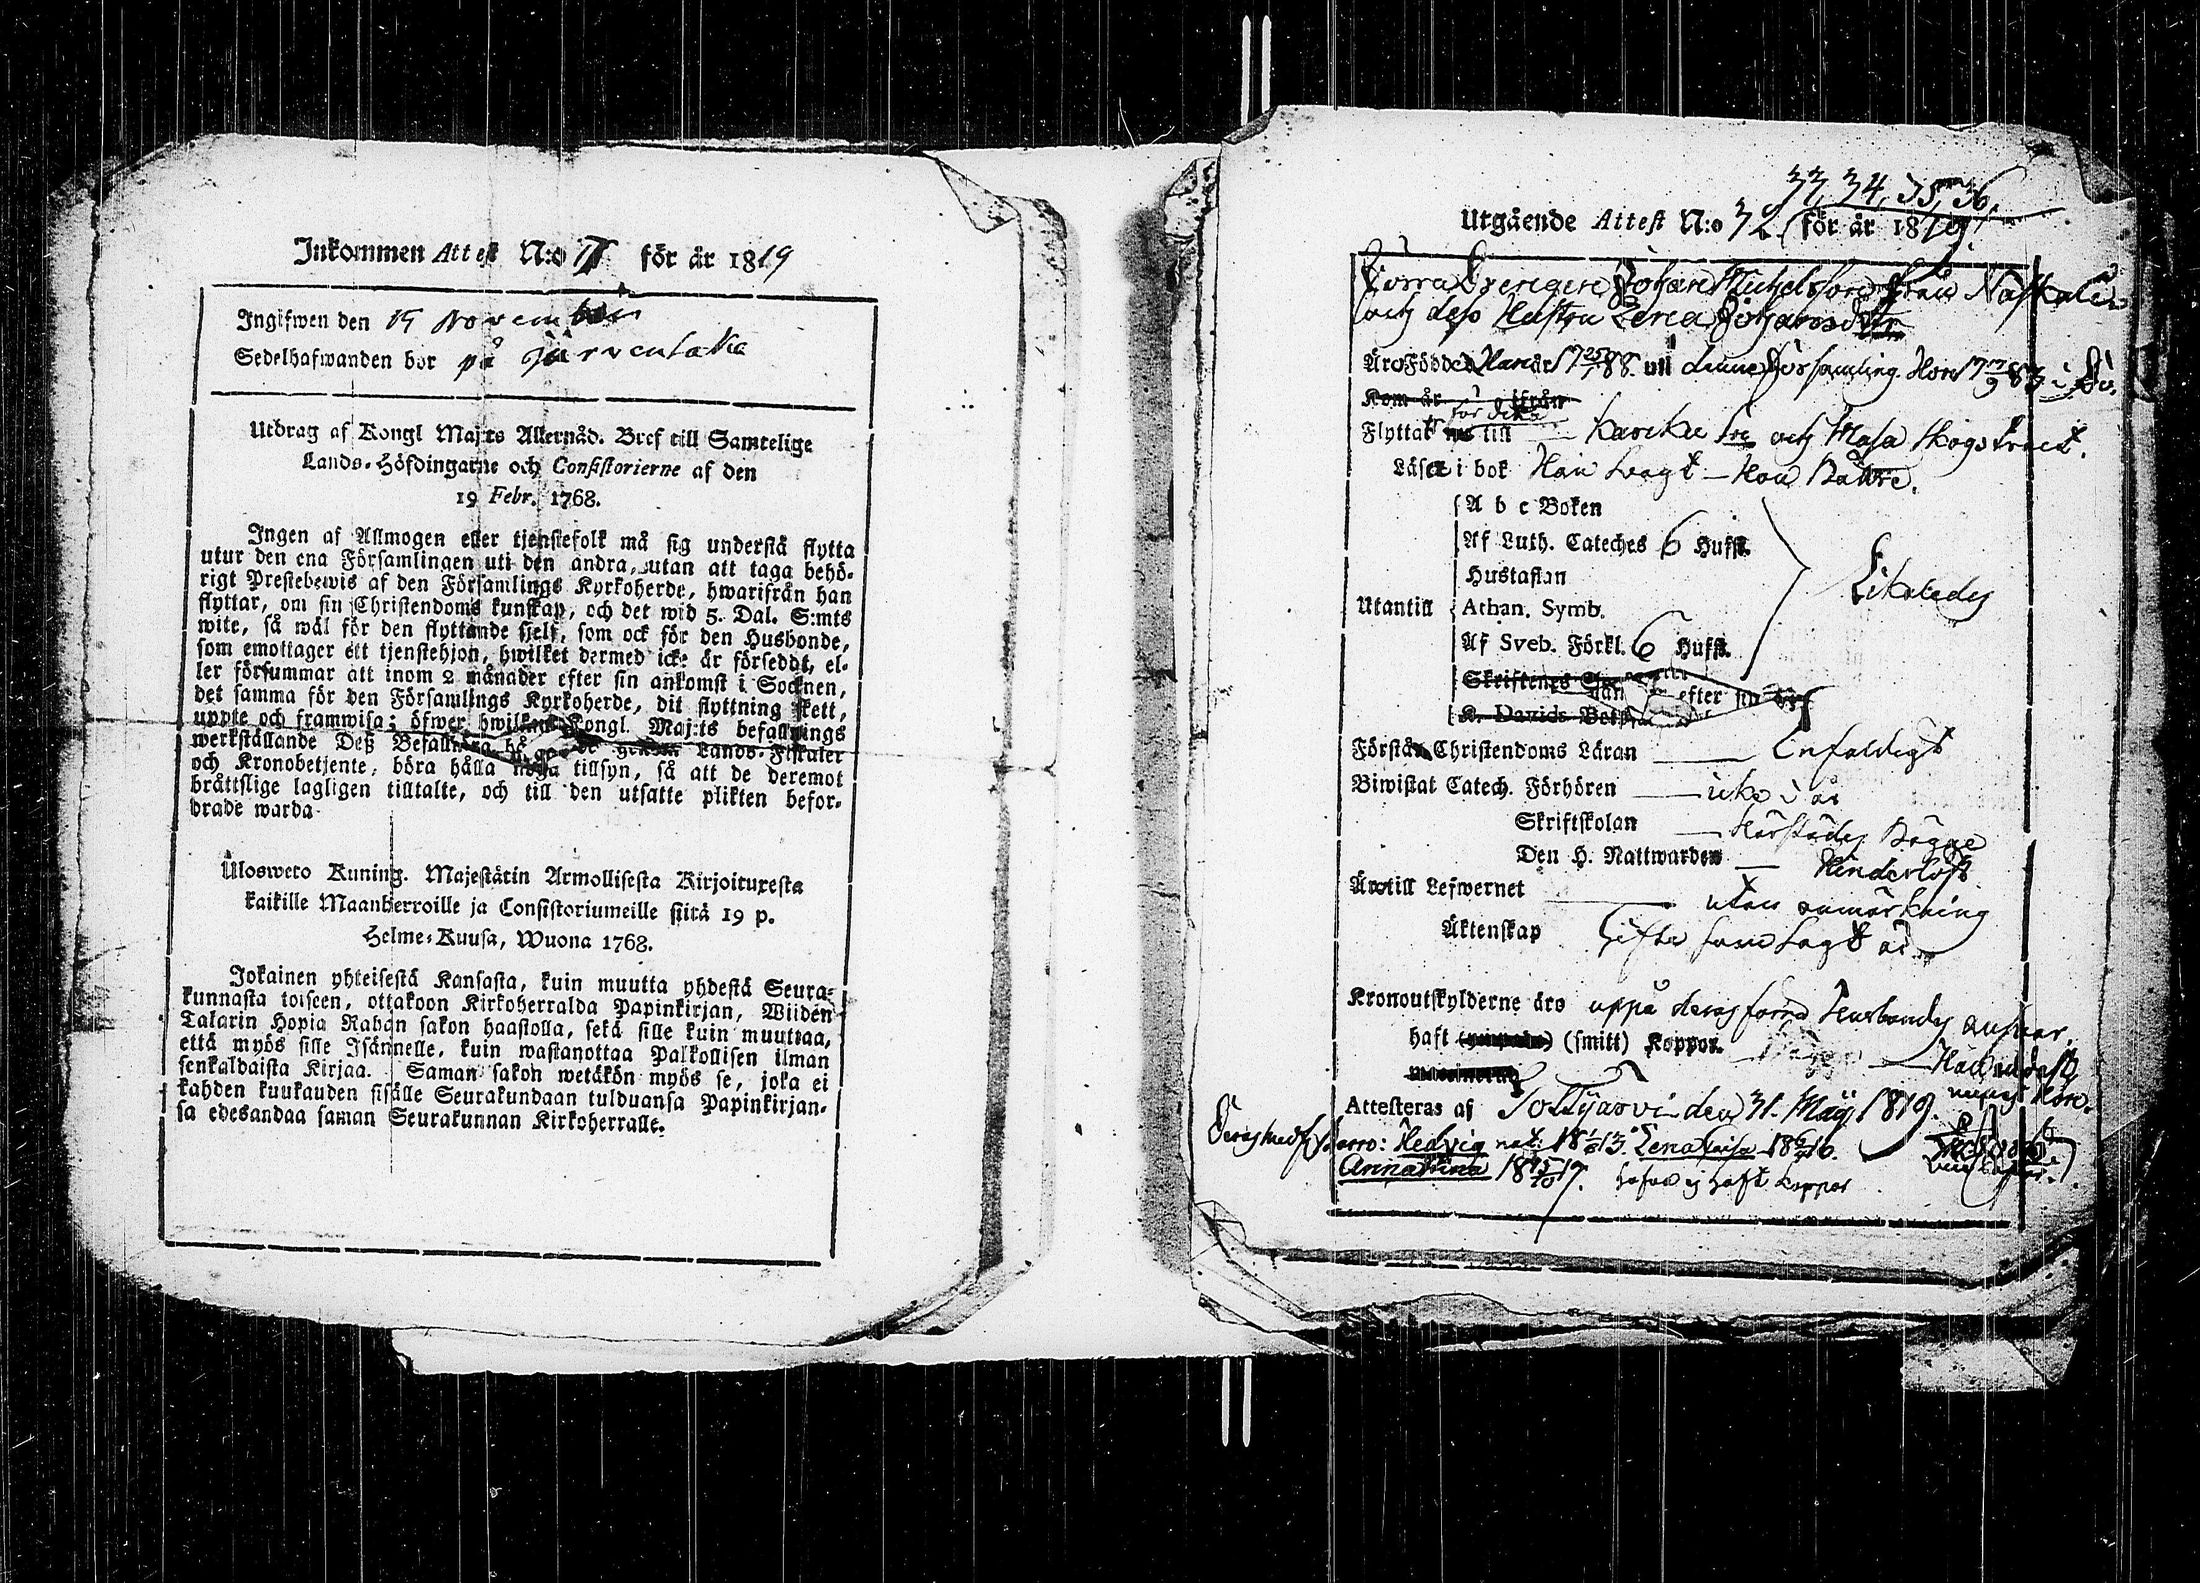 Inkommen Attest N:o för år 1819
Ingifwen den 15 November
Sedelhafwanden bor på
Utdrag af Kongl Maj:ts Allernåd. Bref till Samtelige
Lands-Höfdingarne och Consistorierne af den
19 Febr. 1768.
Ingen af Allmogen eller tjenstefolk må sig understå flytta
utur den ena Församlingen uti den andra, utan att taga behö-
rigt Prestebewis af den Församlings Kyrkoherde, hwarifrån han
flyttar, om sin Christendoms kunskap, och det wid 5. Dal. S:mts
wite, så wäl för den flyttande sjelf, som ock för den Husbonde,
som emottager ett tjenstehjon, hwilket dermed icke är försedt, el-
ler försummar att inom 2 månader efter sin ankomst i Socknen,
det samma för den Församlings Kyrkoherde, dit flyttning skett,
uppte och framwisa; öfwer hwilkens Kongl. Maj:ts befallnings
werkställande Deß Befallnings Lands-Fiskaler
och Kronobetjente, böra hålla noga tillsyn, så att de deremot
bråttslige lagligen tilltalte, och till den utsatte plikten befor-
drade warda.
Ulosweto Kuning. Majestätin Armollisesta Kirjoituxesta
kaikille Maanherroille ja Consistoriumeille siitä 19 p.
Helme-Kuusa, Wuona 1768.
Jokainen yhteisestä Kansasta, kuin muutta yhdestä Seura-
kunnasta toiseen, ottakoon Kirkoherralda Papinkirjan, Wiiden
Talarin Hopia Rahan sakon haastolla, sekä sille kuin muuttaa,
että myös sille Isännelle, kuin wastanottaa Palkollisen ilman
senkaldaista Kirjaa. Saman sakon wetäkön myös se, joka ei
kahden kuukauden sisälle Seurakundaan tulduansa Papinkirjan-
sa edesandaa saman Seurakunnan Kirkoherralle.
33, 34, 35, 36,
Utgående Attest N:o 32 för år 1819.
Förra Johan Michelsson från
och dess Hustru Lena Johansdotter
Äro Födde Han år 17 88. uti denne Församling. Hon 17 83 i
Kom år ifrån
Flyttat till och Masa Skogstract.
Läser i bok Han Svagt — Hon Bättre.
A b c Boken
Af Luth. Cateches 6 Hufst.
Hustaflan
Utantill Athan. Symb. Likaledes
Af Sveb. Förkl. 6 Hufst.
Skriftenes efter
K. Davids
Förstår Christendoms Läran — Enfaldigt
Biwistat Catech. Förhören — icke i år
Skriftskolan — Härstädes Begge
Den H. Nattwarden — Hinderlöst
Äro till Lefwernet — utan anmärkning
Äktenskap Gifte som sagt är
Kronoutskylderne äro uppå deras förra Husbondes answar.
haft (smitt) Koppor. — Han
Attesteras af den 31. Maij 1819.
Deras medfl. barn: Hedvig nat: 18 13. Lena Caisa 18 16.
Anna Stina 18 15/10 17. hafva ej haft koppor